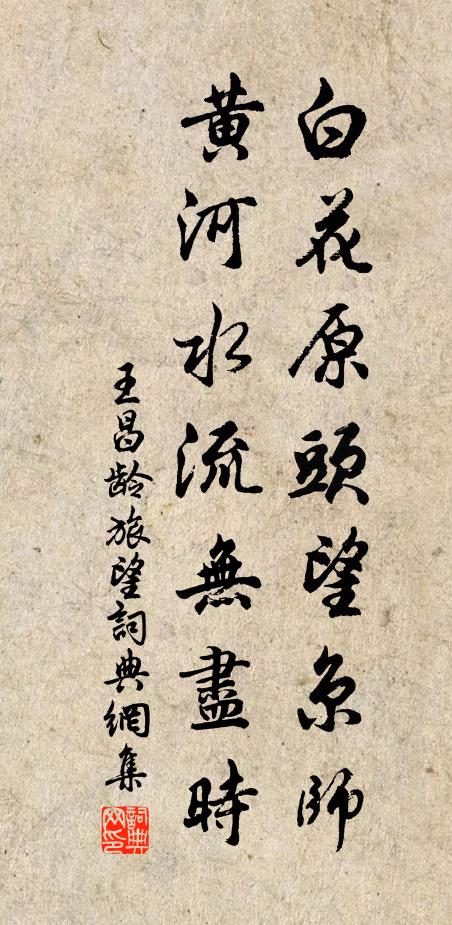 白花原頭望京師
黃河水流無盡時
王昌齡旅望詞典網集
詞典
网印